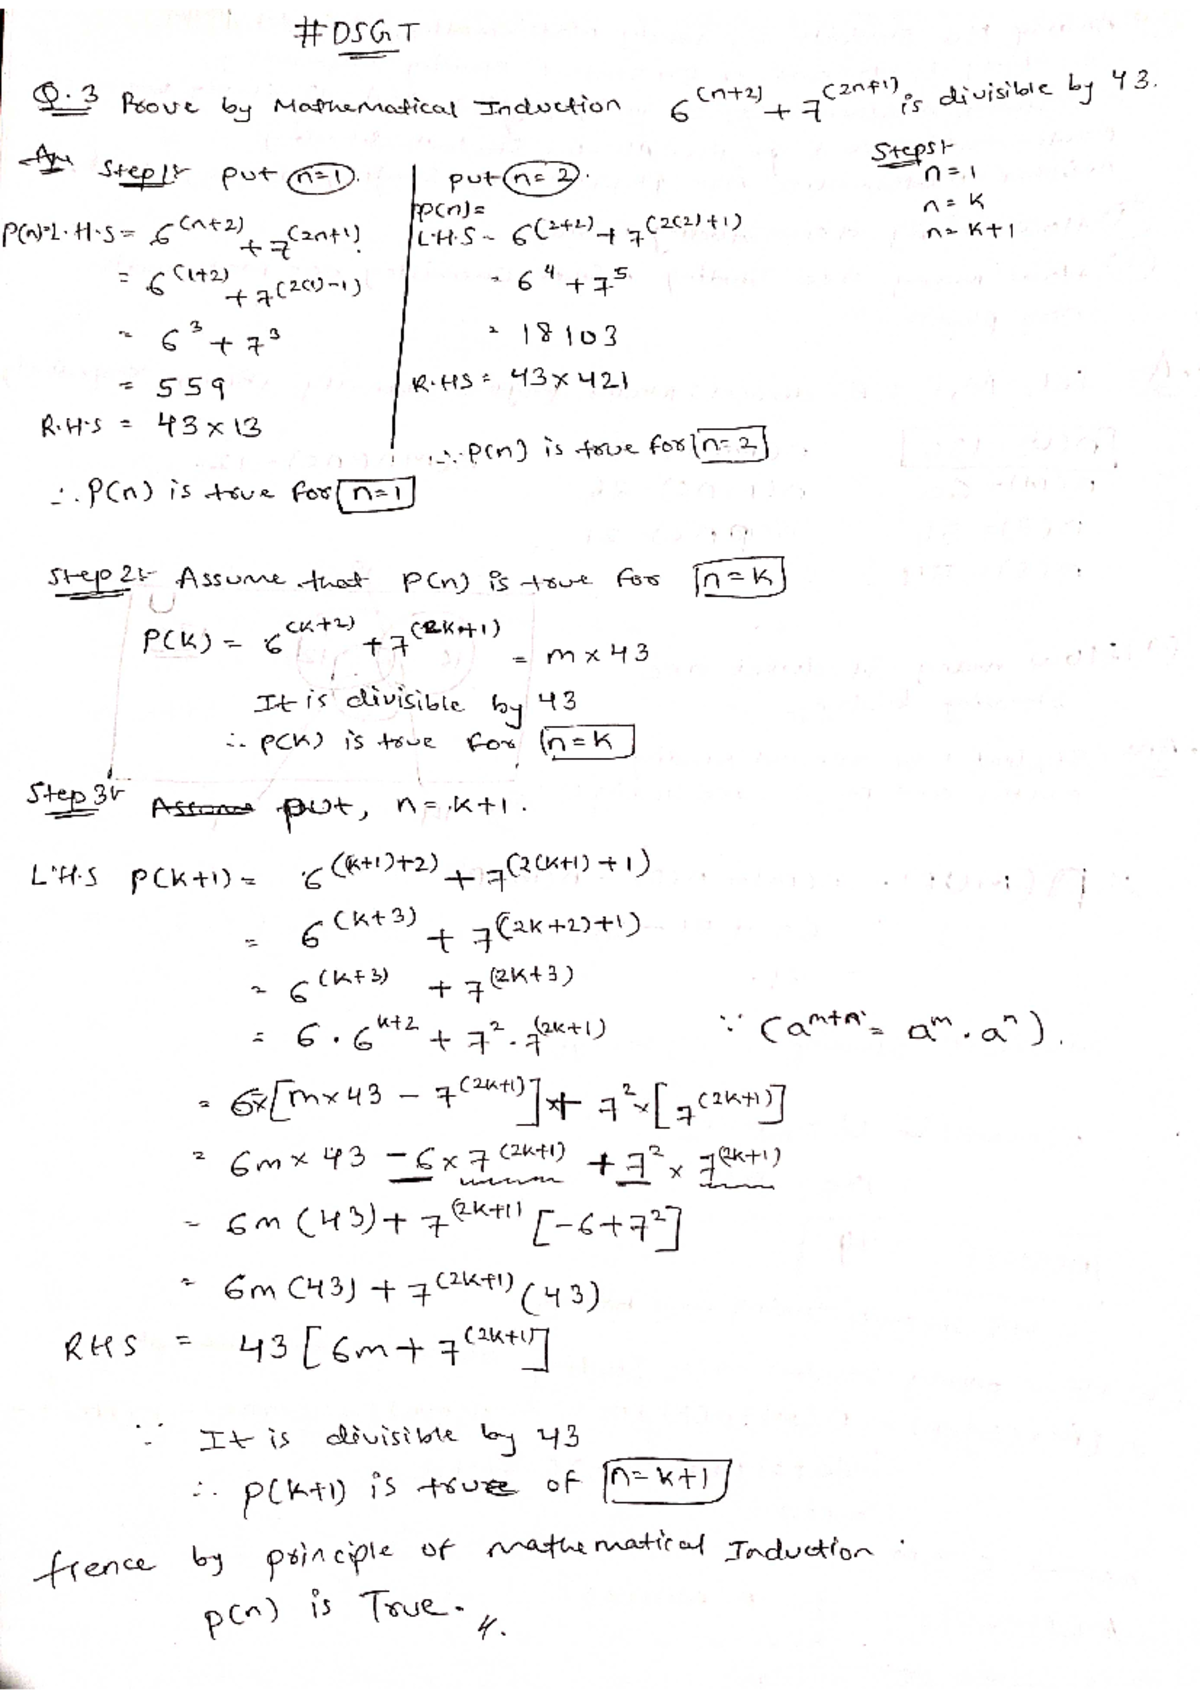 #DSGT
Q.3 Prove by Mathematical Induction 6^(n+2) + 7^(2n+1) is divisible by 43.
Ans Step 1:- put n=1.
P(n)=L.H.S = 6^(n+2) + 7^(2n+1)
= 6^(1+2) + 7^(2(1)-1)
= 6^3 + 7^3
= 559
R.H.S = 43 x 13
∴ P(n) is true for n=1
put n=2.
P(n)=
L.H.S = 6^(2+2) + 7^(2(2)+1)
= 6^4 + 7^5
= 18103
R.HS = 43 x 421
∴ P(n) is true for n=2
Steps:-
n=1
n=K
n=K+1
Step 2:- Assume that P(n) is true for n=K
P(K) = 6^(K+2) + 7^(2K+1) = m x 43
It is divisible by 43
∴ P(K) is true for n=K
Step 3:- Assume put, n=K+1.
L.H.S P(K+1) = 6^((K+1)+2) + 7^(2(K+1)+1)
= 6^(K+3) + 7^((2K+2)+1)
= 6^(K+3) + 7^(2K+3)
= 6 . 6^K+2 + 7^2 . 7^(2K+1) ∵ (a^m+n = a^m . a^n).
= 6x[m x 43 - 7^(2K+1)] + 7^2 x [7^(2K+1)]
= 6m x 43 - 6 x 7^(2K+1) + 7^2 x 7^(2K+1)
= 6m (43) + 7^(2K+1) [-6+7^2]
= 6m (43) + 7^(2K+1) (43)
RHS = 43 [6m + 7^(2K+1)]
∵ It is divisible by 43
∴ P(K+1) is true of n=K+1
Hence by principle of mathematical Induction.
P(n) is True.